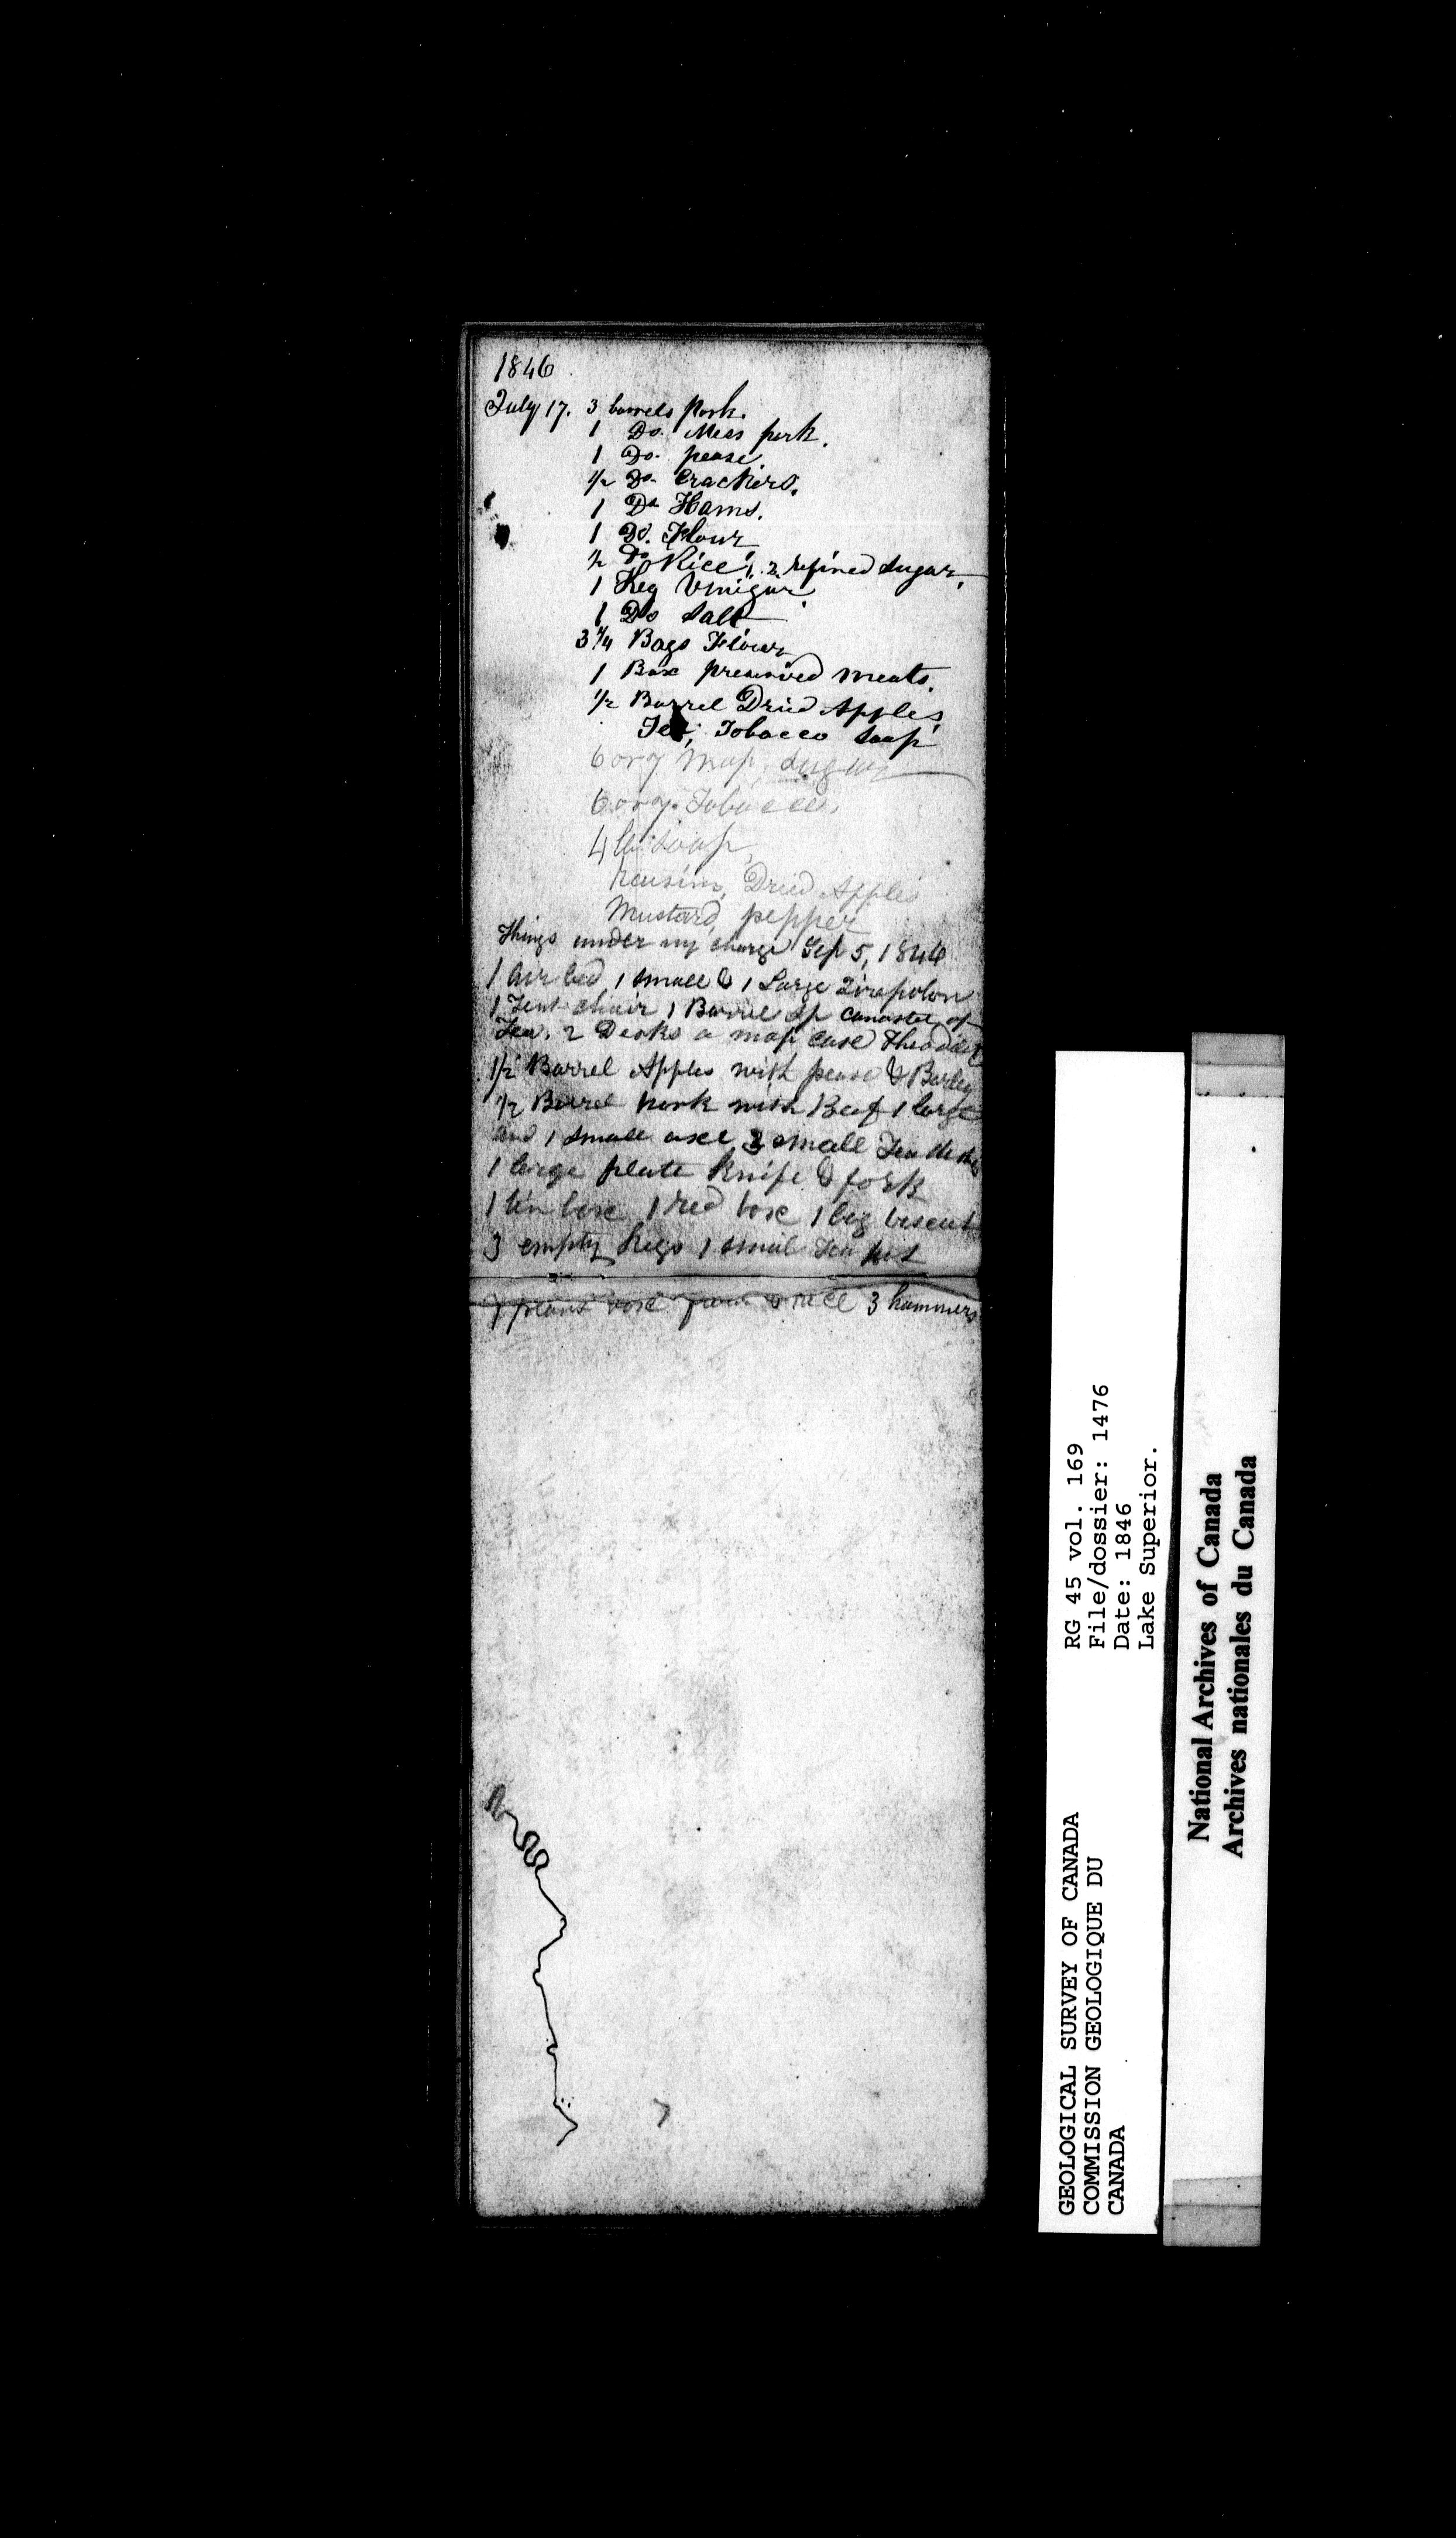 1846
July 17. 3 barrels pork.
1 Do. Mess pork.
1 Do. pease.
1/2 Do. Crackers.
1 Do Hams.
1 Do. Flour
1/2 Do Rice, refined sugar,
1 Keg Vinigar.
1 Do Salt
3 1/4 Bags Flour
1 Box preserved meats.
1/2 Barrel Dried Apples,
Tea, Tobacco Soap
map. sugar
Tobacco,
4 lb soap,
Dried Apples
Mustard, pepper
Things under my charge Sep 5, 1846
1 Air bed 1 small & 1 Large
1 Tent chair 1 Barrel canaster of
Tea. 2 Desks a map case
1/2 Barrel Apples with pease & Barley
1/2 Barrel pork with Beef 1 large
and 1 small axe 3 small
1 large plate knife & fork
1 tin box 1 red box 1 bag biscuit
3 empty kegs 1 small Tea
3 hammers
GEOLOGICAL SURVEY OF CANADA
COMMISSION GEOLOGIQUE DU
CANADA
RG 45 vol. 169
File/dossier: 1476
Date: 1846
Lake Superior.
National Archives of Canada
Archives nationales du Canada